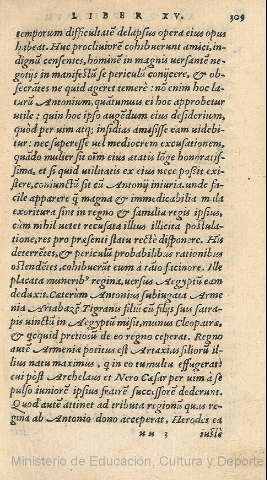 LIBER XV. 309
temporum difficultatē delapsus opera eius opus
habeat. Huc procliuiorē cohibuerunt amici, in-
dignū censentes, hominē in magnis uersantē ne-
gotijs in manifestū se periculū conijcere, & ob-
secrātes ne quid ageret temerē: nō enim hoc la-
turū Antonium, quatumuis ei hoc approbetur
utile: quin hoc ipso augēdum eius desiderium,
quòd per uim atq; insidias amisisse eam uidebi-
tur: nec superesse uel mediocrem excusationem,
quādo mulier sit oīm eius ætatis lōgè honoratis-
sima. et si quid utilitatis ex eius nece possit exi-
stere, coniunctū sit cū Antonij iniuria. unde fa-
cile apparere q̄ magna & immedicabilia mala
exoritura sint in regno & familia regis ipsius,
cùm nihil uetet recusata illius illicita postula-
tione, res pro præsenti statu rectè disponere. His
deterrētes, & periculū probabilibus rationibus
ostendētes, cohibuerūt eum à tāto facinore. Ille
placata munerib⁹ regina, uersus Aegyptū eam
deduxit. Cæterum Antonius subiugata Arme
nia Artabazē Tigranis filiū cū filijs suis satra-
pis uinctū in Aegyptū misit, munus Cleopatræ,
& quicquid pretiosū de eo regno ceperat. Regno
autē Armeniæ potitus est Artaxias filiorū il-
lius natu maximus, qui in eo tumultu effugerat:
cui pōst Archelaus et Nero Cæsar per uim à se
pulso iuniorē ipsius fratrē successorē dederunt.
Quod autē attinet ad tributa regionis quas re-
gina ab Antonio dono acceperat, Herodes ea
uu 3 iustè
Ministerio de Educación, Cultura y Deporte